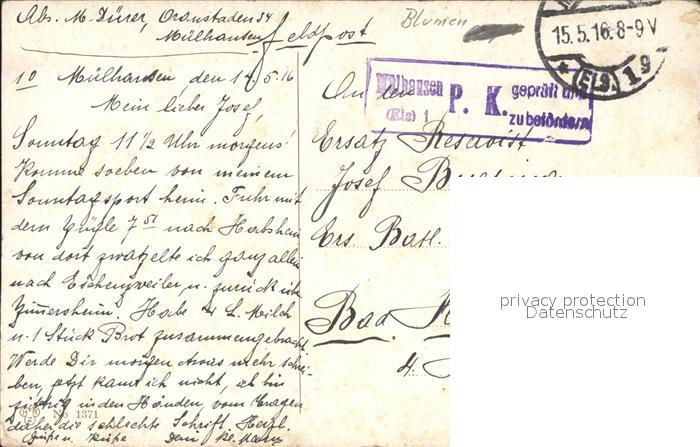 Abs. M. Dürer, Oranstaden 34
Mülhausen Feldpost
Blumen
15.5.16.8-9V
(ELS.) 19
10 Mülhausen, den 14.5.16
Mein lieber Josef,
Sonntag 11 1/2 Uhr morgens
Komme soeben von meinem
Sonntagsport heim. Fuhr mit
dem Zügle 7 51 nach Habsheim
von dort zwatzelte ich ganz allein
nach Eschenzweiler u. zurück über
Zimmersheim. Habe L. Milch
u. 1 Stück Brot zusammengebracht.
Werde Dir morgen etwas mehr schrei-
ben, jetzt kann ich nicht, ich bin
zittrig in den Händen, vom Tragen
daher die schlechte Schrift. Herzl.
Grüße u. Küße Dein kl.
No 1371
Mülhausen
(Els) 1
P. K.
geprüft und
zu befördern
An den
Ersatz Reservist
Josef
Ers. Batl.
Bad
4.
privacy protection
Datenschutz